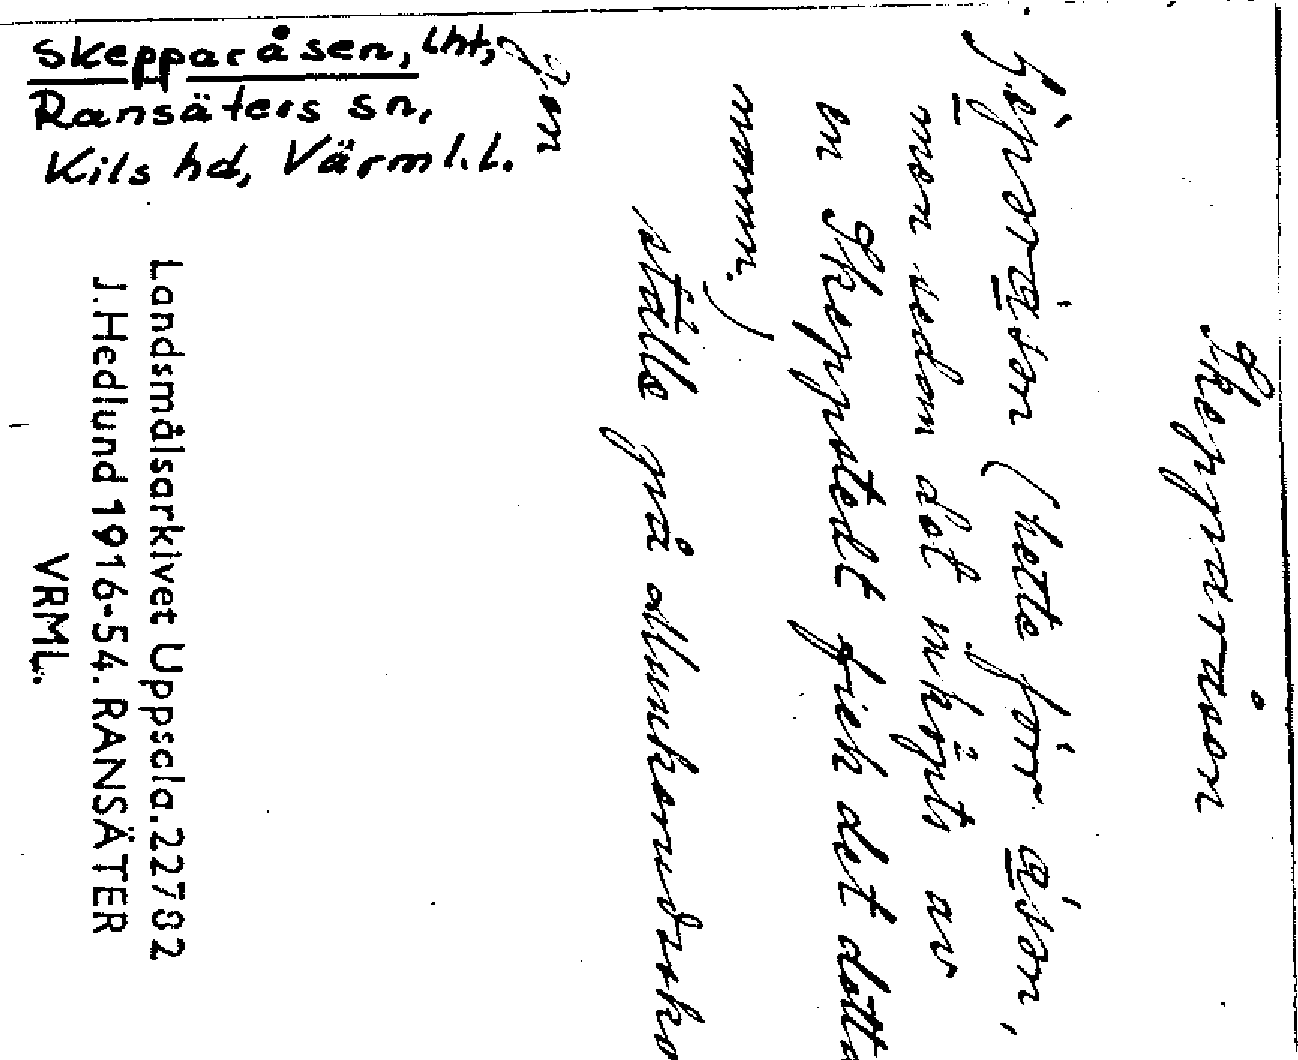 Skepparåsen, lht,
Ransäters sn,
Kils hd, Värml.l.
Skepparåsen
(hette förr åsən,
men sedan det inköpts av
en Skeppstedt fick det detta
namn.)
ställe på
Landsmålsarkivet Uppsala. 22782
J. Hedlund 1916-54. RANSÄTER
VRML.